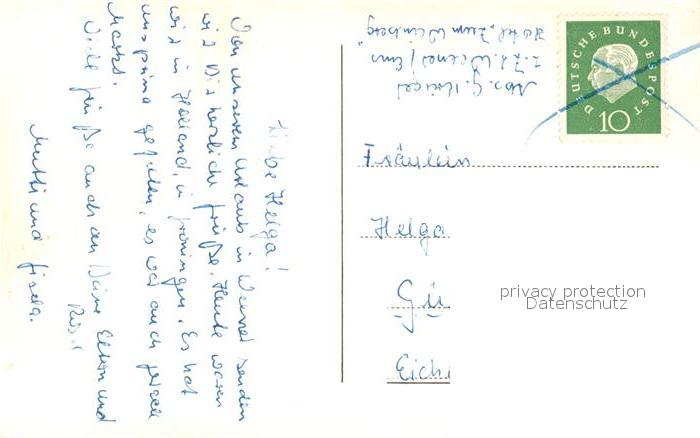 Liebe Helga!
Von unserem Urlaub in Weener senden
wir Dir herzliche Grüße. Heute waren
wir in Holland, in Gröningen. Es hat
uns prima gefallen, es war auch gerade
Markt.
Viele Grüße auch an Deine Eltern und
Mutti und Gisela.
Abs. G.
z. Zt. Weener/Ems
Hotel "Zum Weinberg"
DEUTSCHE BUNDESPOST
10
Fräulein
Helga
Gü
Eich
privacy protection
Datenschutz